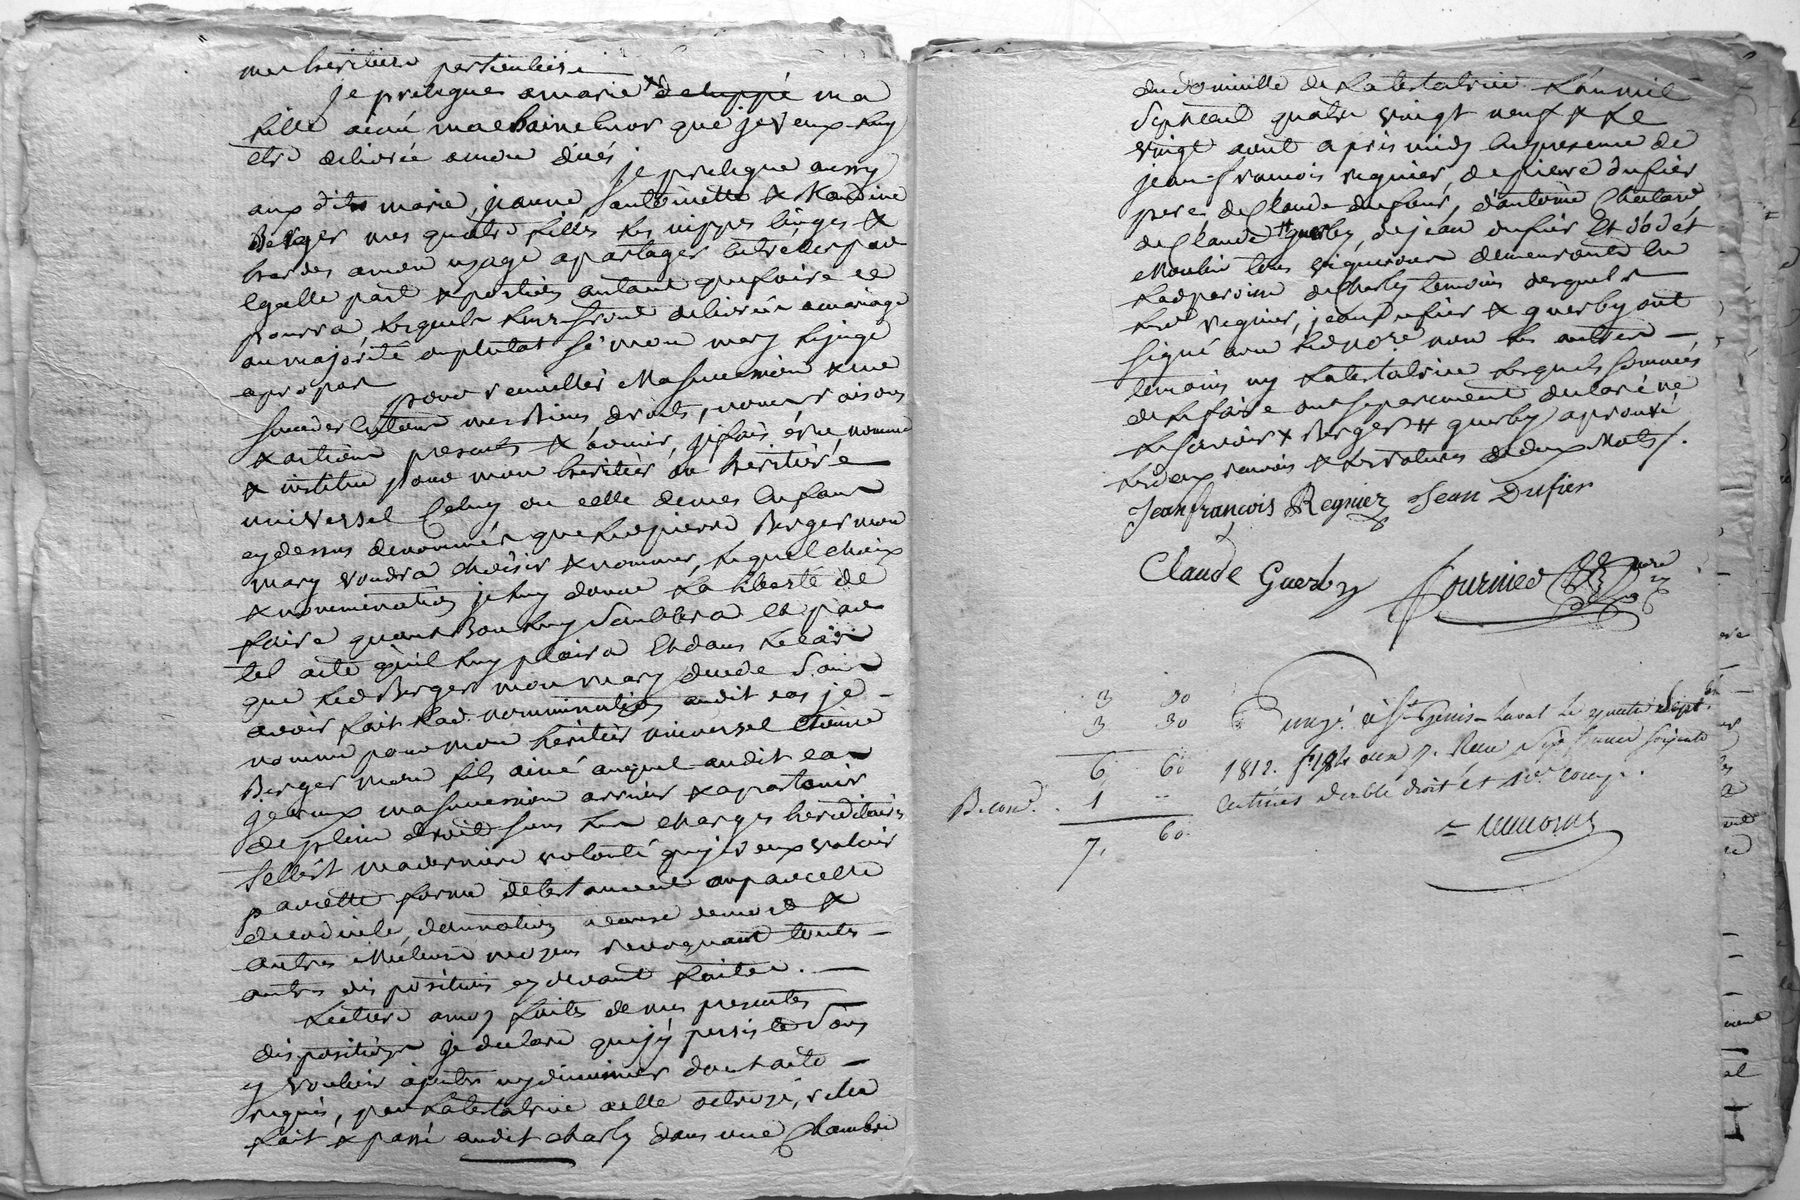 mes heritiers particuliers
je prelegues a marie ma
fille ainé ma chaine d'or que je veux luy
etre delivrée a mon décés
je prelegue aussy
aux dites marie, jeanne antoinette & Claudine
Berger mes quatre filles les nippes linges &
hardes a mon usage a partager entr'elles par
egalle part & portion autant que faire ce
pourra, lesquels leurs seront delivrés a mariage
ou majorité ou plutot si mon mary le juge
a propos
pour recueillir Ma succession & me
succeder en tous mes Biens, droits, noms raisons
& actions presents & avenir, je fais, crée, nomme
& institue pour mon heritier ou heritiere
universel Celuy ou celle de mes Enfans
cy dessus denommés que led pierre Berger mon
mary voudra choisir & nommer, lequel choix
& nomination je luy donne la liberté de
faire quand Bon luy Semblera et par
tel acte qu'il luy plaira Et dans le cas
que led Berger mon mary decede Sans
avoir fait lad. nomination audit cas je
nomme pour mon heritier universel Etienne
Berger mon fils ainé auquel audit cas
je veux ma succession arriver & apartenir
de plein droit sous les charges hereditaires
telle est ma derniere volonté que je veux valoir
par cette forme de testament ou par celle
de codicile, donnation a cause de mort &
autres Meilleurs moyens revoquant toutes
autres dispositions cy devant faites.
Lecture a moy faite de mes presentes
dispositions je declare que j'y persiste Sans
y vouloir ajouter ny diminuer dont acte
requis, par la testatrice a elle octroyé,
fait & passé audit charly dans une Chambre
du domicille de la testatrice L'an mil
Sept cent quatre vingt neuf & le
vingt aout apres midy En presence de
jean-francois regnier, de pierre dufier
pere de Claude dufour, d'antoine Chatard
de Claude # guerby, de jean dufier Et
Moulin tous vignerons demeurants en
lad paroisse de Charly temoins desquels
led regnier, jean dufier & guerby ont
signé avec led no.re non les autres
temoins ny la testatrice lesquels sommés
de le faire ont separement declaré ne
le savoir & Berger # guerby aprouvé
les deux renvois & les ratures de deux Mots /.
Jean françois Regnier Jean Dufier
Claude Guerby Fournier
3 30
3 30
6 60
1 --
7, 60
à St Genis-Laval Le quatre Sept.bre
1812. Reçu Six francs soixante
centimes double droit et